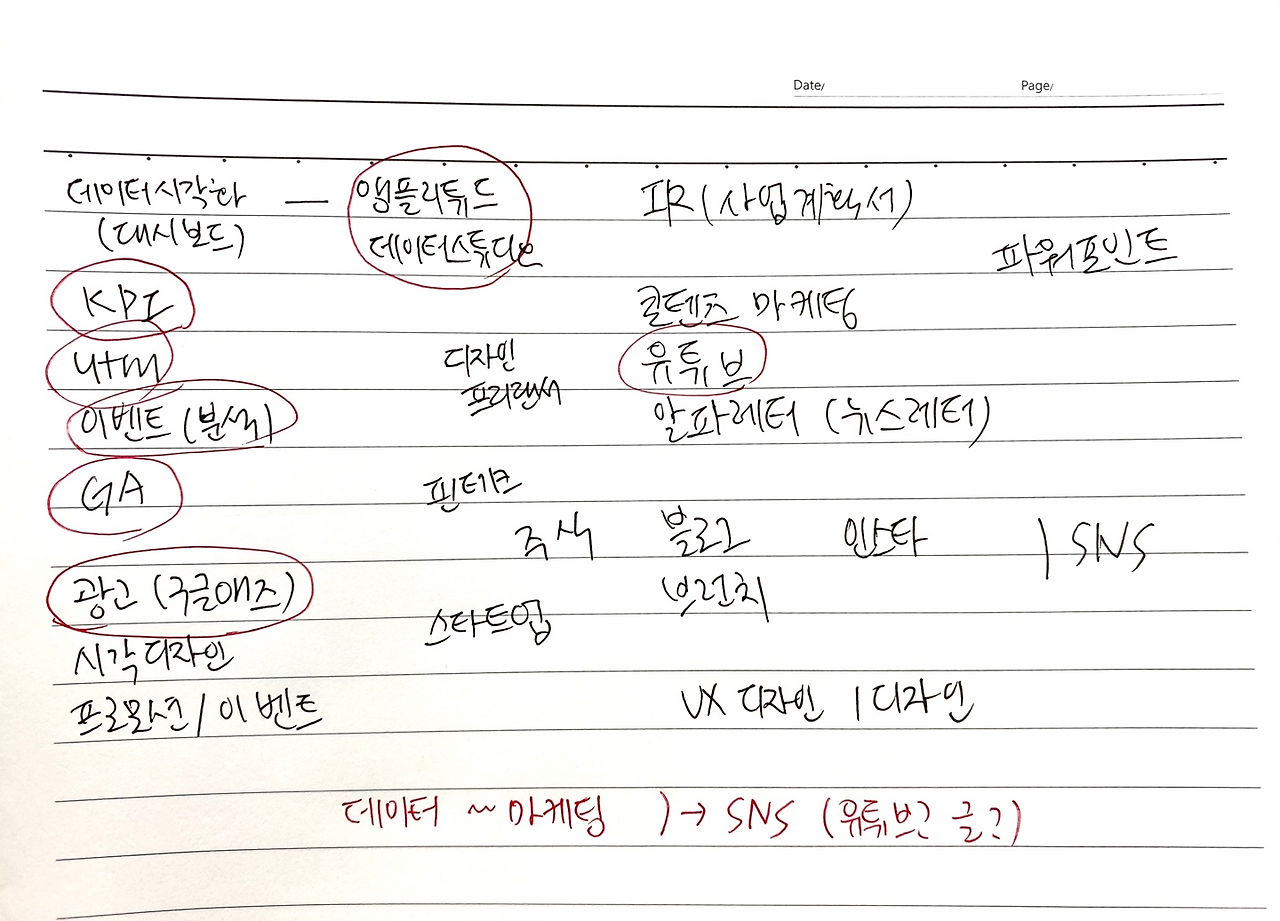 Date/ Page/
데이터시각화 — 앰플리튜드 IR (사업계획서)
(대시보드) 데이터스튜디오 파워포인트
KPI 콘텐츠 마케팅
utm 디자인 유튜브
프리랜서
이벤트 (분석) 알파레터 (뉴스레터)
GA 핀테크
주식 블로그 인스타 | SNS
광고 (구글애즈) 브런치
스타트업
시각디자인
프로모션 / 이벤트 UX 디자인 / 디자인
데이터 ~ 마케팅 ) → SNS (유튜브? 글?)